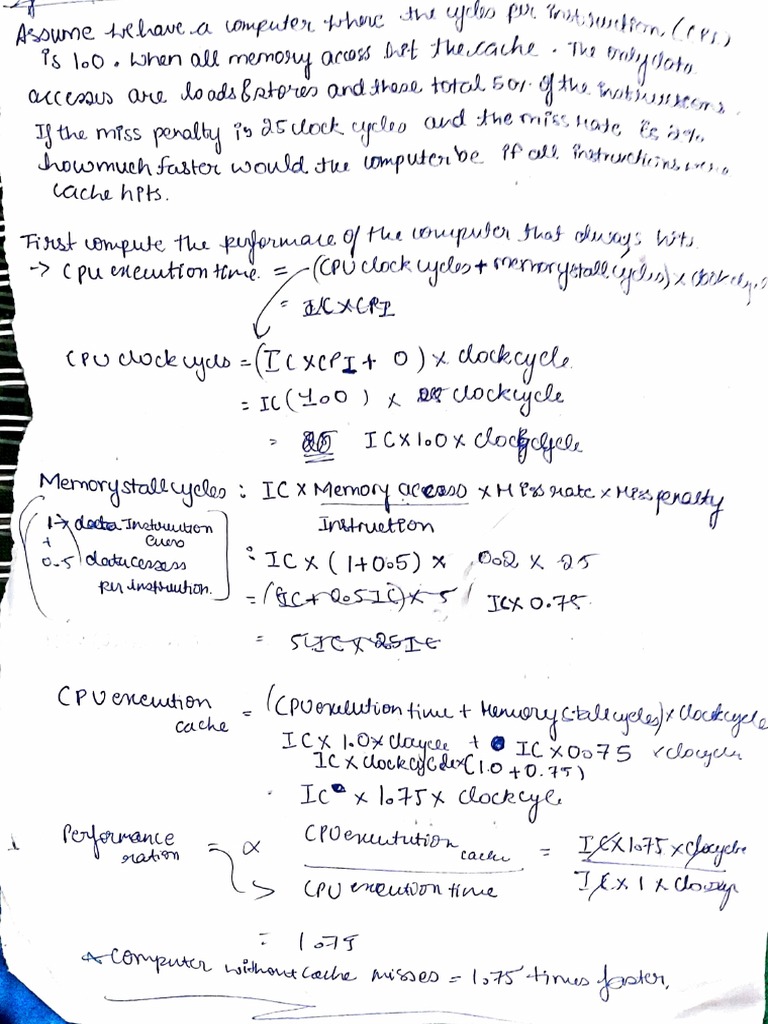 Assume we have a computer where the cycles per instruction (CPI)
is 1.0. when all memory access hit the cache. The only data
accesses are loads & stores and these total 50% of the instructions.
If the miss penalty is 25 clock cycles and the miss rate is 2%
how much faster would the computer be if all instructions were
cache hits.
First compute the performace of the computer that always hits
→ Cpu execution time = (CPU clock cycles + memory stall cycles) x clock cycle
= IC x CPI
CPU clock cycls = (IC x CPI + 0) x clockcycle
= IC (1.0) x clockcycle
= IC x 1.0 x clockcycle
Memory stall cycles : IC x Memory access x Miss rate x Miss penalty
Instruction
1 → Instruction
+
0.5 dataccess
per instruction.
: IC x (1+0.5) x 0.02 x 25
= (IC + 0.5 IC) x 5 / IC x 0.75
= 5 IC x 25 IC
CPU execution cache = (CPU execution time + Memory stall cycles) x clockcycle
IC x 1.0 x + IC x 0.75 x
IC x clockcycle x (1.0 + 0.75)
IC x 1.75 x clockcycle
Performance ration = ∝ CPU execution cache = IC x 1.75 x
CPU execution time IC x 1 x
= 1.75
Computer without cache misses = 1.75 times faster.